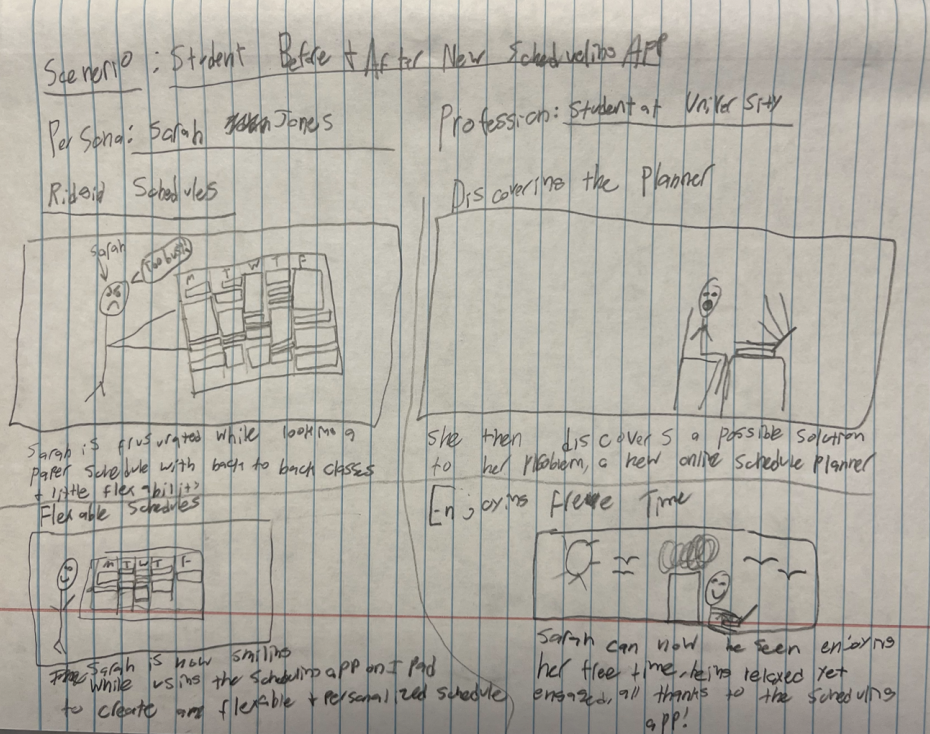 Scenerio : Student Before + After New Scheduling App
Persona: Sarah Jones
Profession: Student at University
Ridgid Schedules
Sarah
Too busy
M T W T F
Sarah is frusurated while looking a
paper schedule with back to back classes
+ little flexability
Discovering the Planner
She then discovers a possible solution
to her problem, a new online schedule planner
Flexable Schedules
M T W T F
Sarah is now smiling
while using the scheduling app on I pad
to create a flexable + personalized schedule
Enjoying Free Time
Sarah can now be seen enjoying
her free time, being relaxed yet
engaged, all thanks to the scheduling
app!